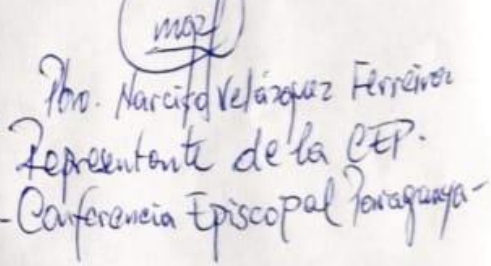 Pbro. Narciso Velázquez Ferreira
Representante de la CEP.
- Conferencia Episcopal Paraguaya -